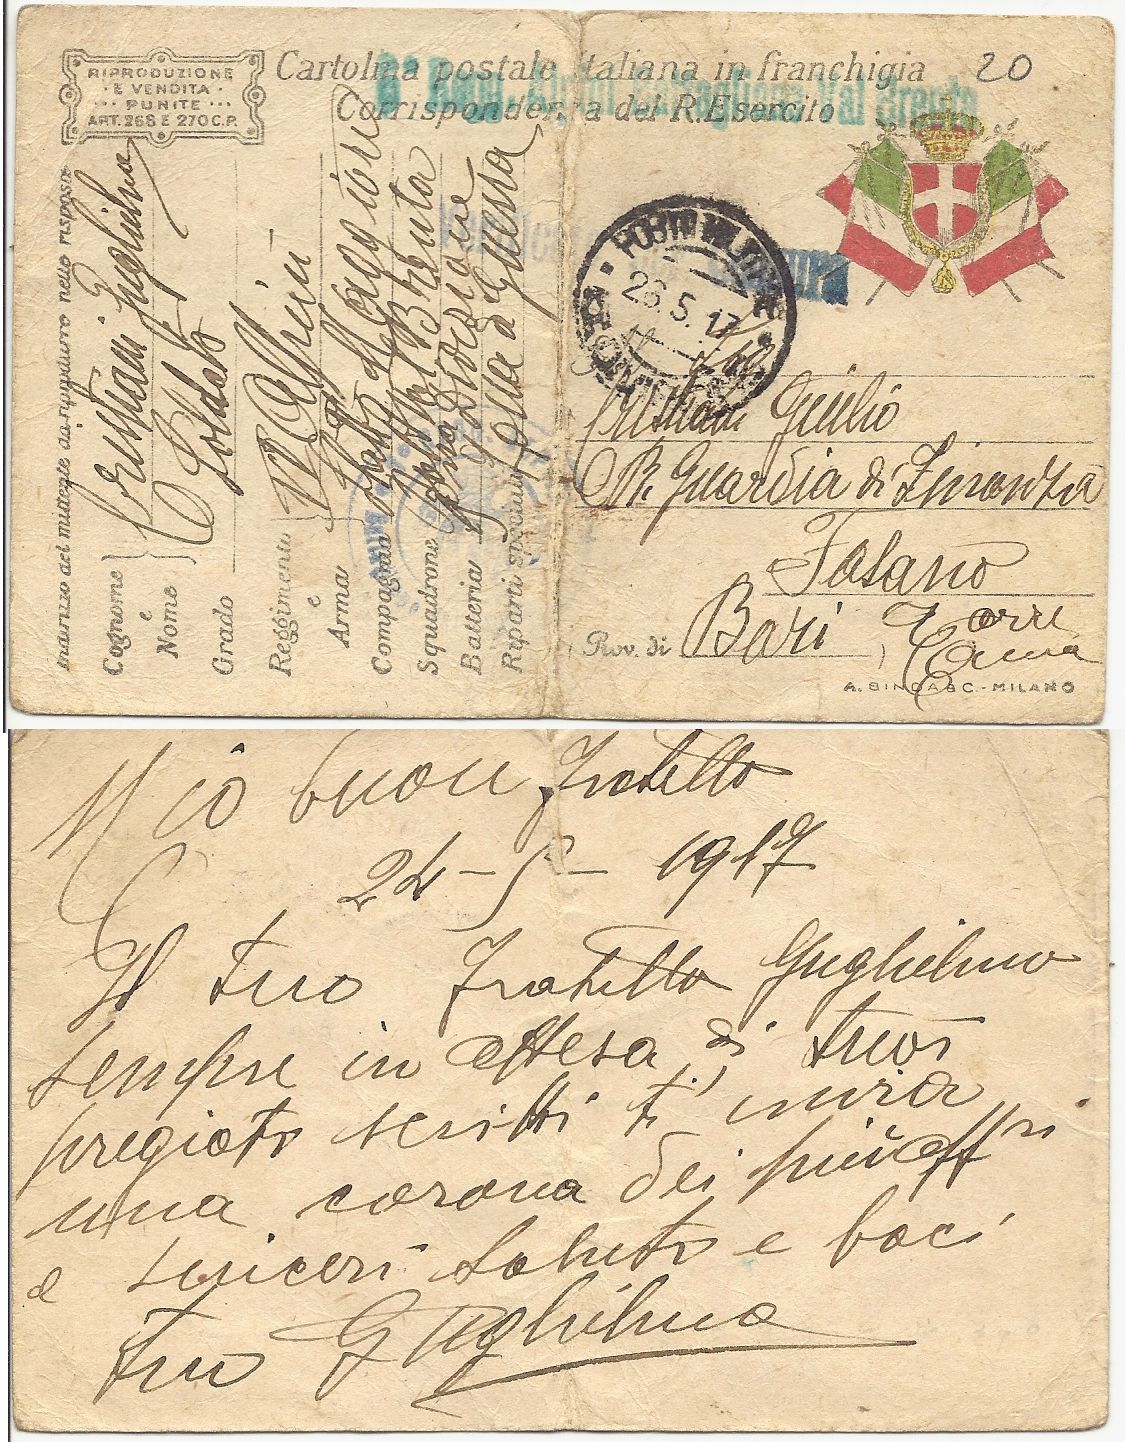 RIPRODUZIONE
E VENDITA
PUNITE
ART. 268 E 270 C.P.
Cartolina postale italiana in franchigia
Corrispondenza del R. Esercito
20
6° Alpini Val Brenta
POSTA MILITARE
26.5.17
Indirizzo del mittente da riprodurre nella risposta
Cognome e Nome Cristiani Guglielmo
Grado Soldato
Reggimento e Arma 6 Alpini
Compagnia Stato Maggiore
Squadrone Batt. Val Brenta
Batteria Divisione
Riparti speciali Zona di Guerra
Cristiani Giulio
R. Guardia di Finanza
Fasano
Prov. di Bari Torre
Canna
A. BINDA & C. - MILANO
Mio buon Fratello
24-5-1917
Il tuo Fratello Guglielmo
sempre in attesa di tuoi
pregiati scritti ti invia
una corona dei più aff.ri
e sinceri saluti e baci
tuo Guglielmo